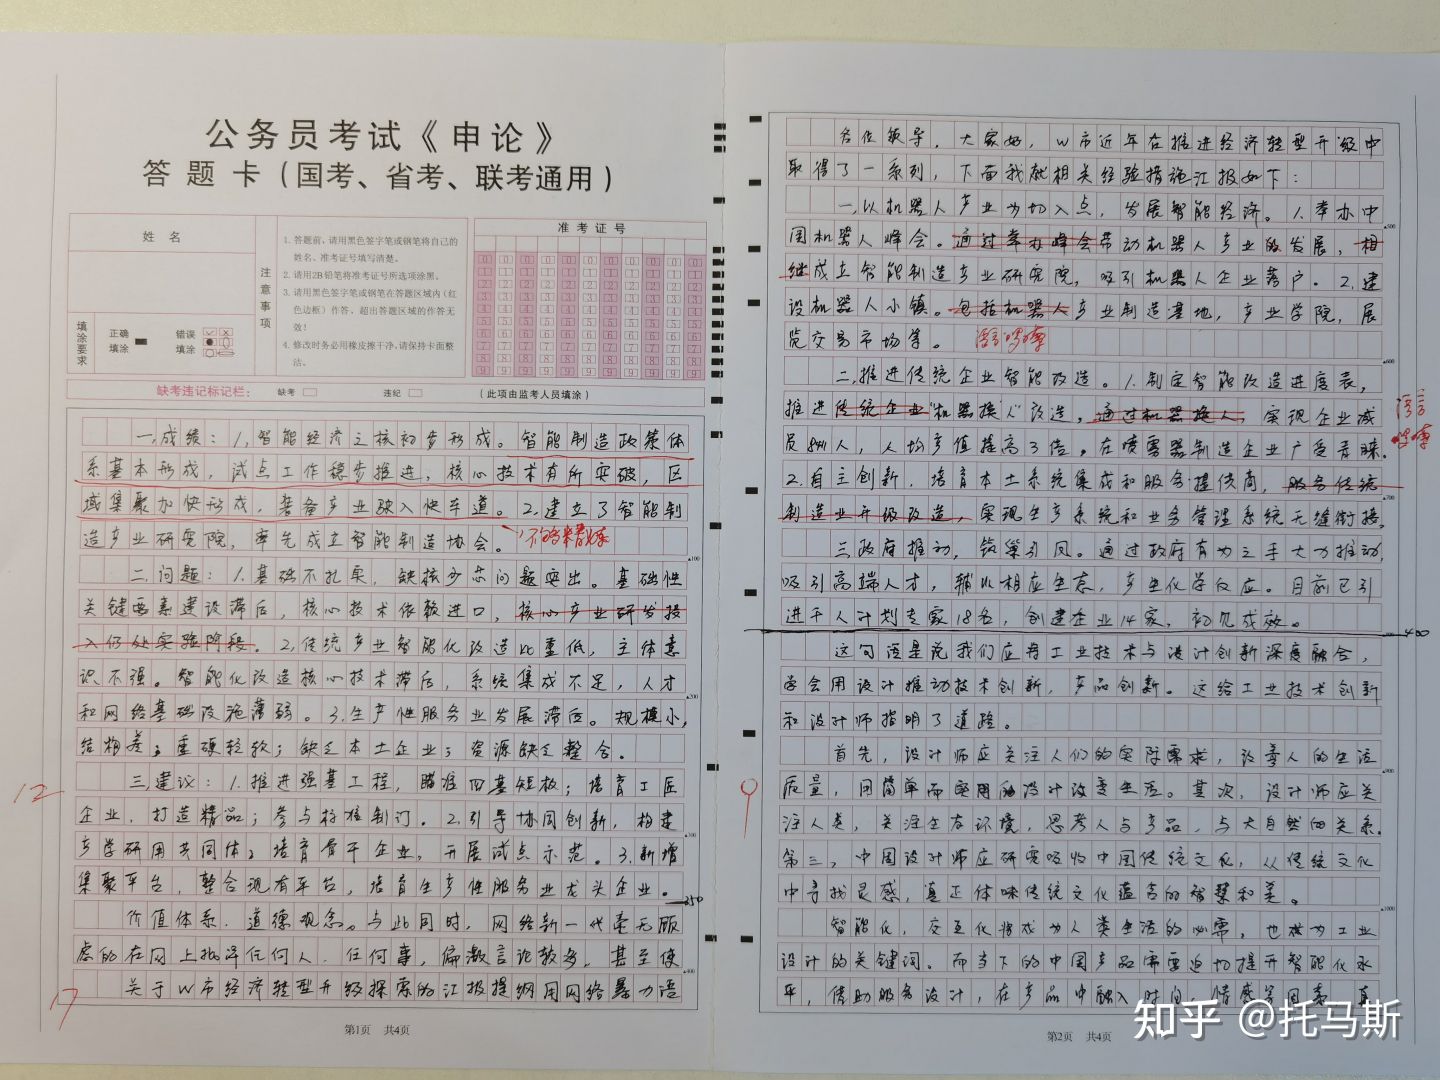 公务员考试《申论》
答题卡（国考、省考、联考通用）
姓名
注意事项
1.答题前,请用黑色签字笔或钢笔将自己的
姓名、准考证号填写清楚。
2.请用2B铅笔将准考证号所选项涂黑。
3.请用黑色签字笔或钢笔在答题区域内(红
色边框)作答,超出答题区域的作答无
效!
4.修改时务必用橡皮擦干净,请保持卡面整
洁。
填涂要求
正确填涂
错误填涂
准考证号
缺考违记标记栏:
缺考
违纪
(此项由监考人员填涂)
一、成绩：1.智能经济之核初步形成。智能制造政策体
系基本形成，试点工作稳步推进，核心技术有所突破，区
域集聚加快形成，装备产业驶入快车道。2.建立了智能制
造产业研究院，率先成立智能制造协会。
二、问题：1.基础不扎实，缺核少芯问题突出。基础性
关键要素建设滞后，核心技术依赖进口，核心产业研发投
入仍处实验阶段。2.传统产业智能化改造比重低，主体意
识不强。智能化改造核心技术滞后，系统集成不足，人才
和网络基础设施薄弱。3.生产性服务业发展滞后。规模小，
结构差；重硬轻软；缺乏本土企业；资源缺乏整合。
三、建议：1.推进强基工程，瞄准四基短板；培育工匠
企业，打造精品；参与标准制订。2.引导协同创新，构建
产学研用共同体；培育骨干企业，开展试点示范。3.新增
集聚平台，整合现有平台，培育生产性服务业龙头企业。
250
价值体系、道德观念。与此同时，网络新一代毫无顾
虑的在网上批评任何人、任何事，偏激言论较多，甚至使
关于W市经济转型升级探索的汇报提纲用网络暴力语
12
17
第1页 共4页
各位领导，大家好，W市近年在推进经济转型升级中
取得了一系列，下面我就相关经验措施汇报如下：
一、以机器人产业为切入点，发展智能经济。1.举办中
国机器人峰会。通过举办峰会带动机器人产业的发展，相
继成立智能制造产业研究院，吸引机器人企业落户。2.建
设机器人小镇。包括机器人产业制造基地，产业学院，展
览交易市场等。
二、推进传统企业智能改造。1.制定智能改造进度表，
推进传统企业"机器换人"改造，通过机器换人，实现企业减
员 人，人均产值提高3倍。在喷雾器制造企业广受青睐。
2.自主创新，培育本土系统集成和服务提供商，服务传统
制造业升级改造，实现生产系统和业务管理系统无缝衔接。
三、政府推动，筑巢引凤。通过政府有为之手大力推动，
吸引高端人才，辅以相应生态，产生化学反应。目前已引
进千人计划专家18名，创建企业14家，初见成效。
400
这句话是说我们应将工业技术与设计创新深度融合，
学会用设计推动技术创新，产品创新。这给工业技术创新
和设计师指明了道路。
首先，设计师应关注人们的实际需求，改善人的生活
质量，用简单而实用的设计改变生活。其次，设计师应关
注人类，关注生存环境，思考人与产品，与大自然的关系。
第三，中国设计师应研究吸收中国传统文化，从传统文化
中寻找灵感，真正体味传统文化蕴含的智慧和美。
智能化，交互化将成为人类生活的必需，也成为工业
设计的关键词。而当下的中国产品需要迫切提升智能化水
平，借助服务设计，在产品中融入时间，情感等因素，真
9
第2页 共4页
知乎 @托马斯